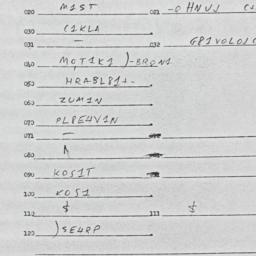 020 MIST 021 -O HNUJ
030 CIKLA
031 — 032 GPIVOLOJC
040 MOTIKI )-BRONI
050 HRABLPI+-
060 ZUMIN
070 PLPE4VIN
071 —
080 A
090 KOSIT
100 KOSI
110 $ 111 $
120 )SE4RP